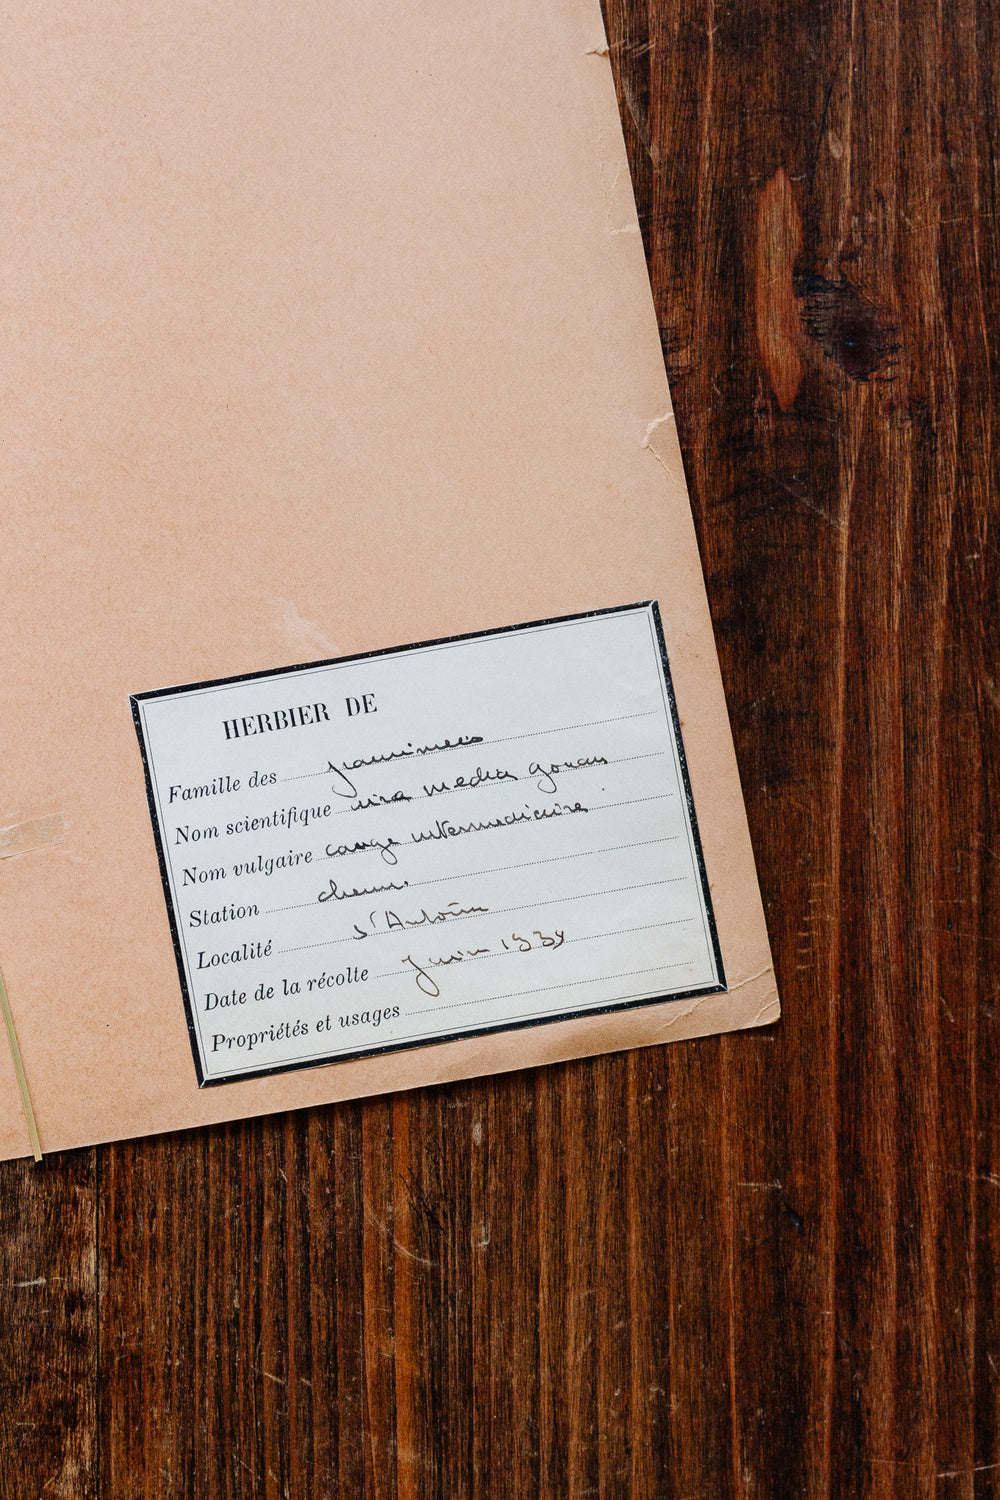 HERBIER DE
Famille des graminées
Nom scientifique aira media gouan
Nom vulgaire cange intermédiaire
Station
Localité St Antoin
Date de la récolte Juin
Propriétés et usages